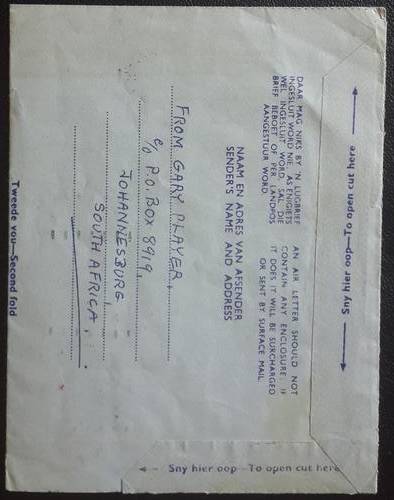 Sny hier oop—To open cut here
DAAR MAG NIKS BY 'N LUGBRIEF
INGESLUIT WORD NIE. AS ENIGIETS
WEL INGESLUIT WORD, SAL DIE
BRIEF BEBOET OF PER LANDPOS
AANGESTUUR WORD.
AN AIR LETTER SHOULD NOT
CONTAIN ANY ENCLOSURE; IF
IT DOES IT WILL BE SURCHARGED
OR SENT BY SURFACE MAIL.
NAAM EN ADRES VAN AFSENDER
SENDER'S NAME AND ADDRESS
FROM GARY PLAYER,
c/o P.O. BOX 8919,
JOHANNESBURG
SOUTH AFRICA.
Tweede vou—Second fold
Sny hier oop—To open cut here